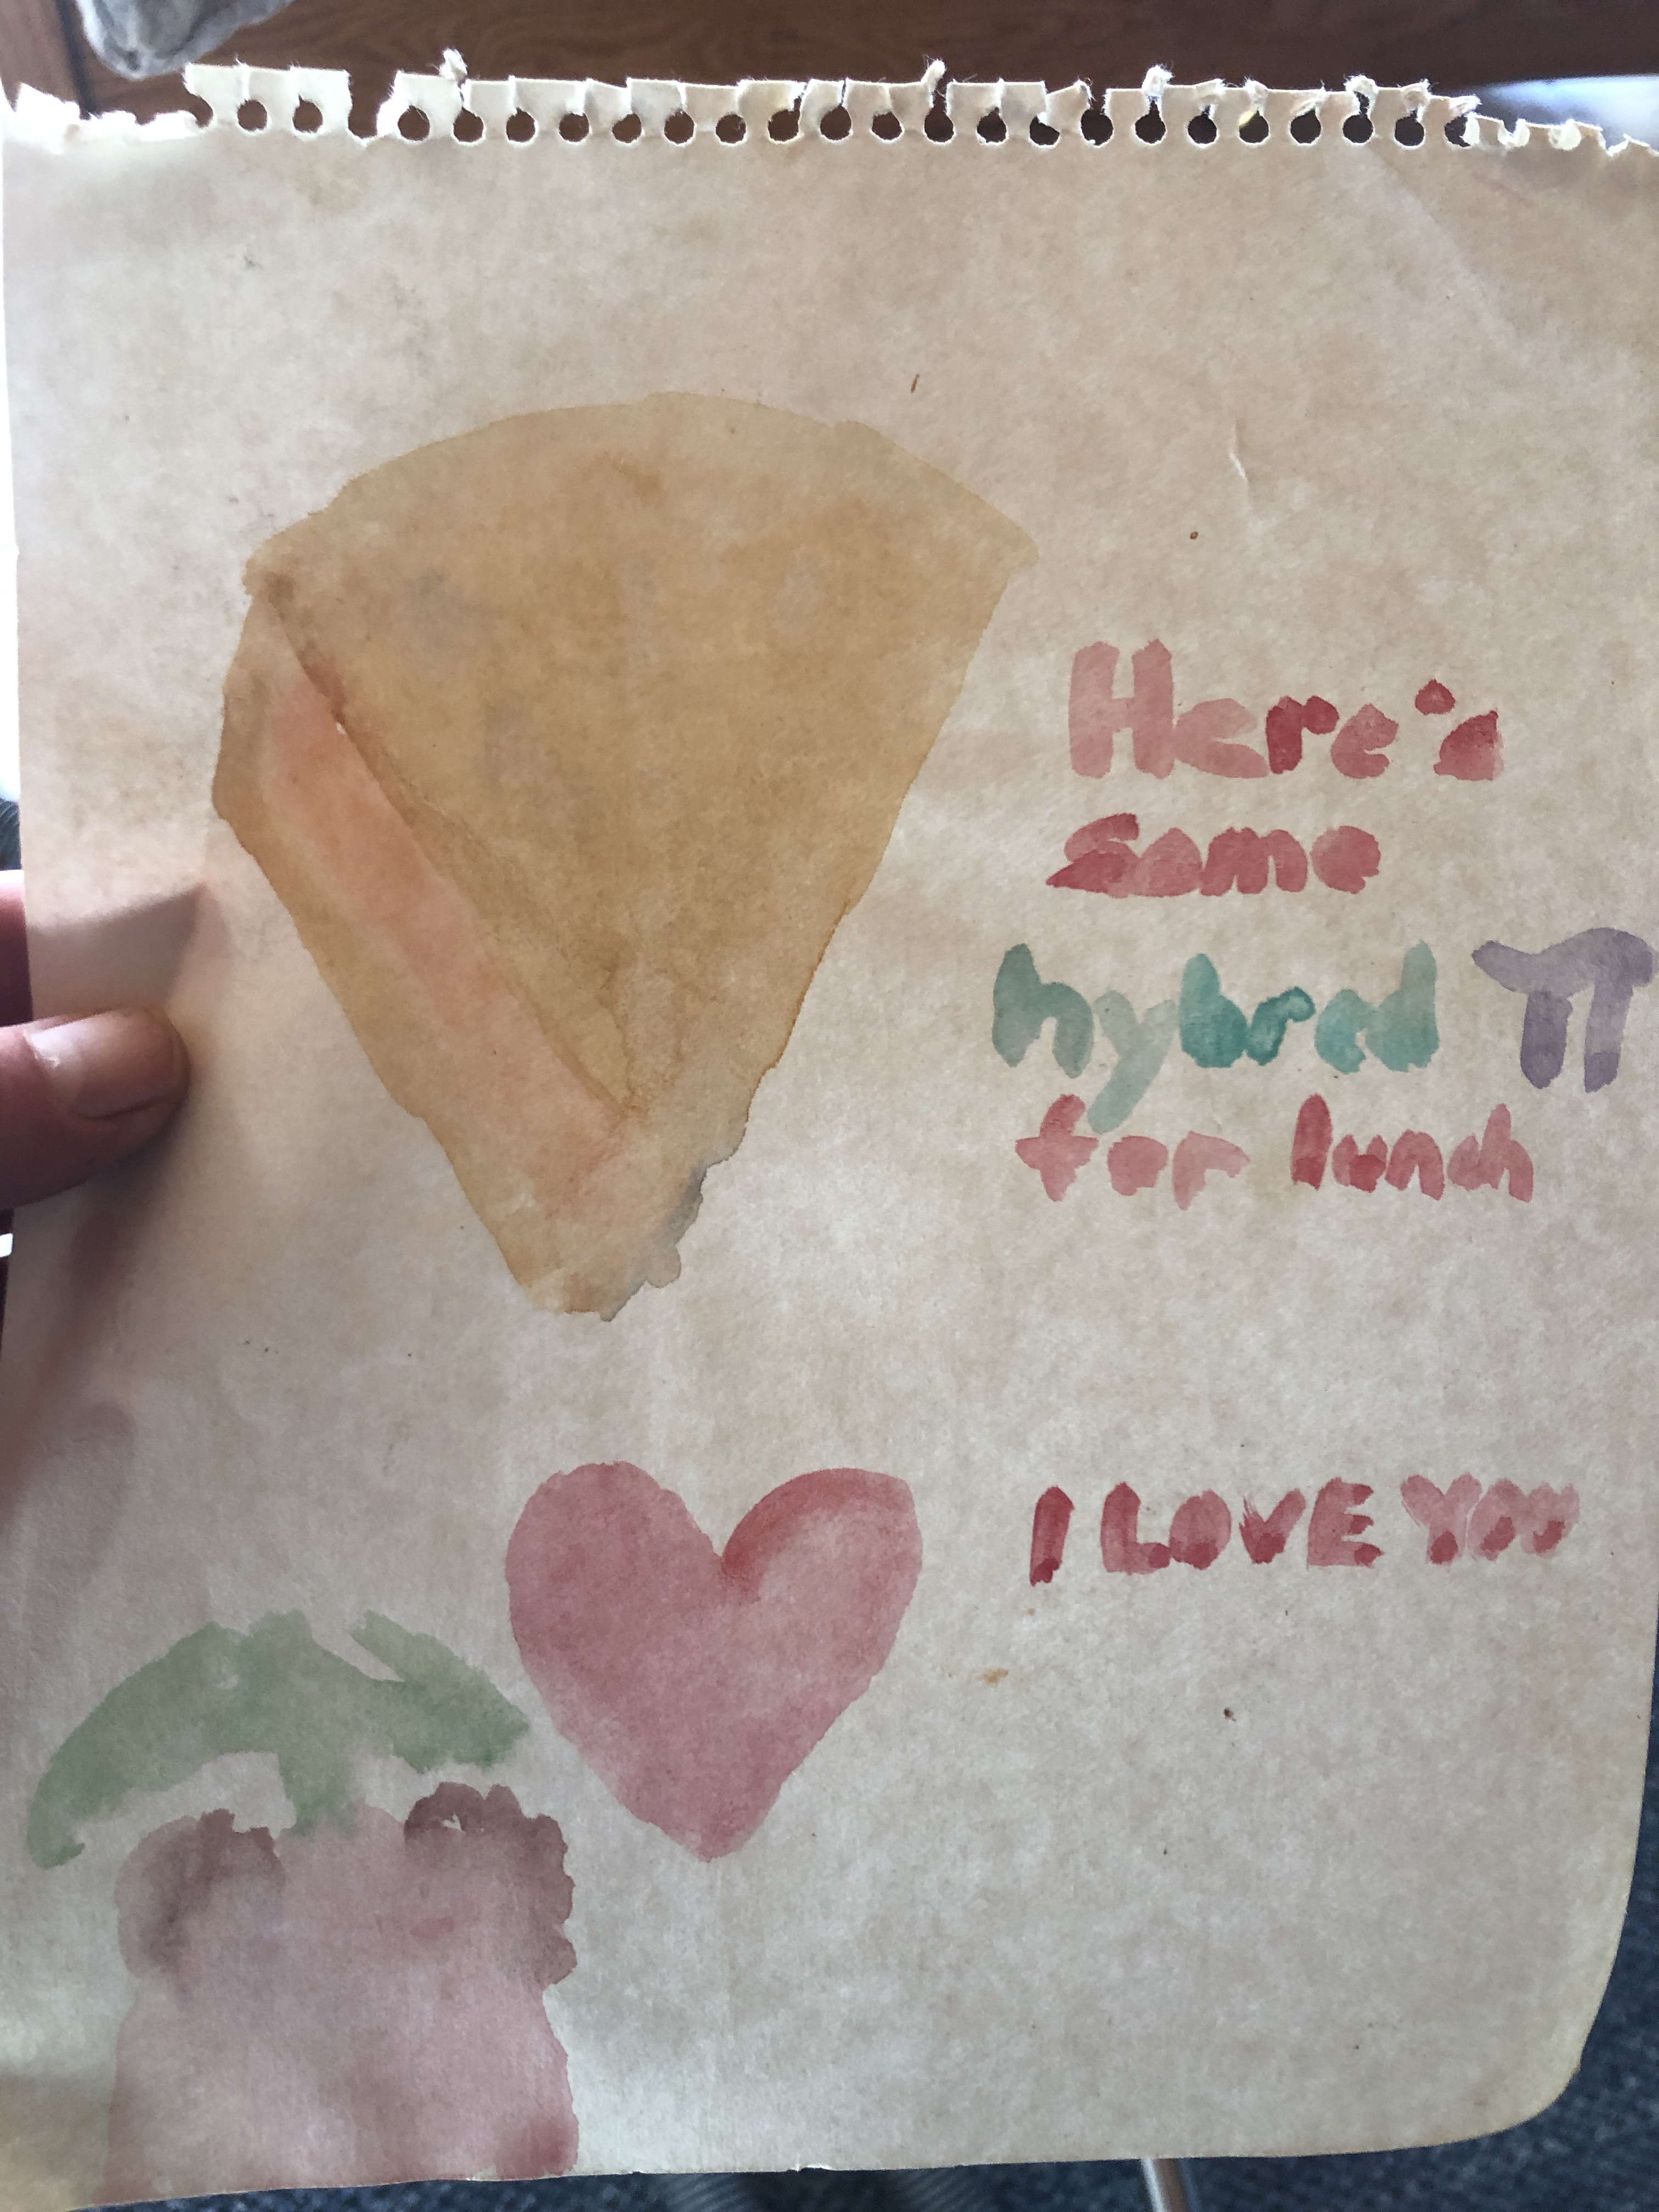 Here's
some
hybred π
for lunch
I LOVE YOU